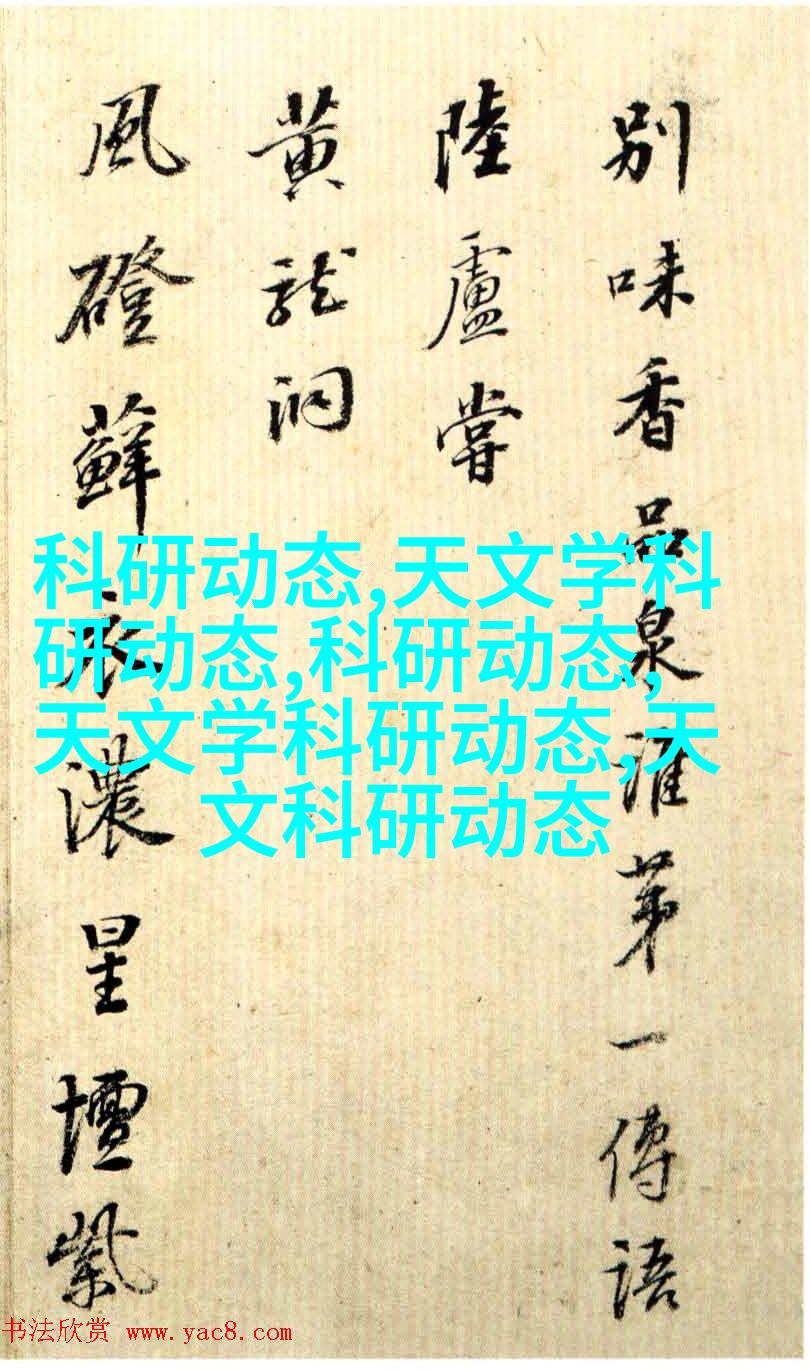 别味香品泉淮苐一傳語
陸盧嘗
黄龍洞
風磴蘚衣濃星壇紫
科研动态,天文学科
研动态,科研动态,
天文学科研动态,天
文科研动态
书法欣赏 www.yac8.com